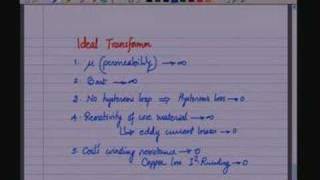 Ideal Transformer
1. μ (permeability) → ∞
2. Bsat → ∞
3. No hysteresis loop ⇒ Hysteresis loss → 0
4. Resistivity of core material → ∞
eddy current losses → 0
5. Coil's winding resistance → 0
Copper loss I²R winding → 0